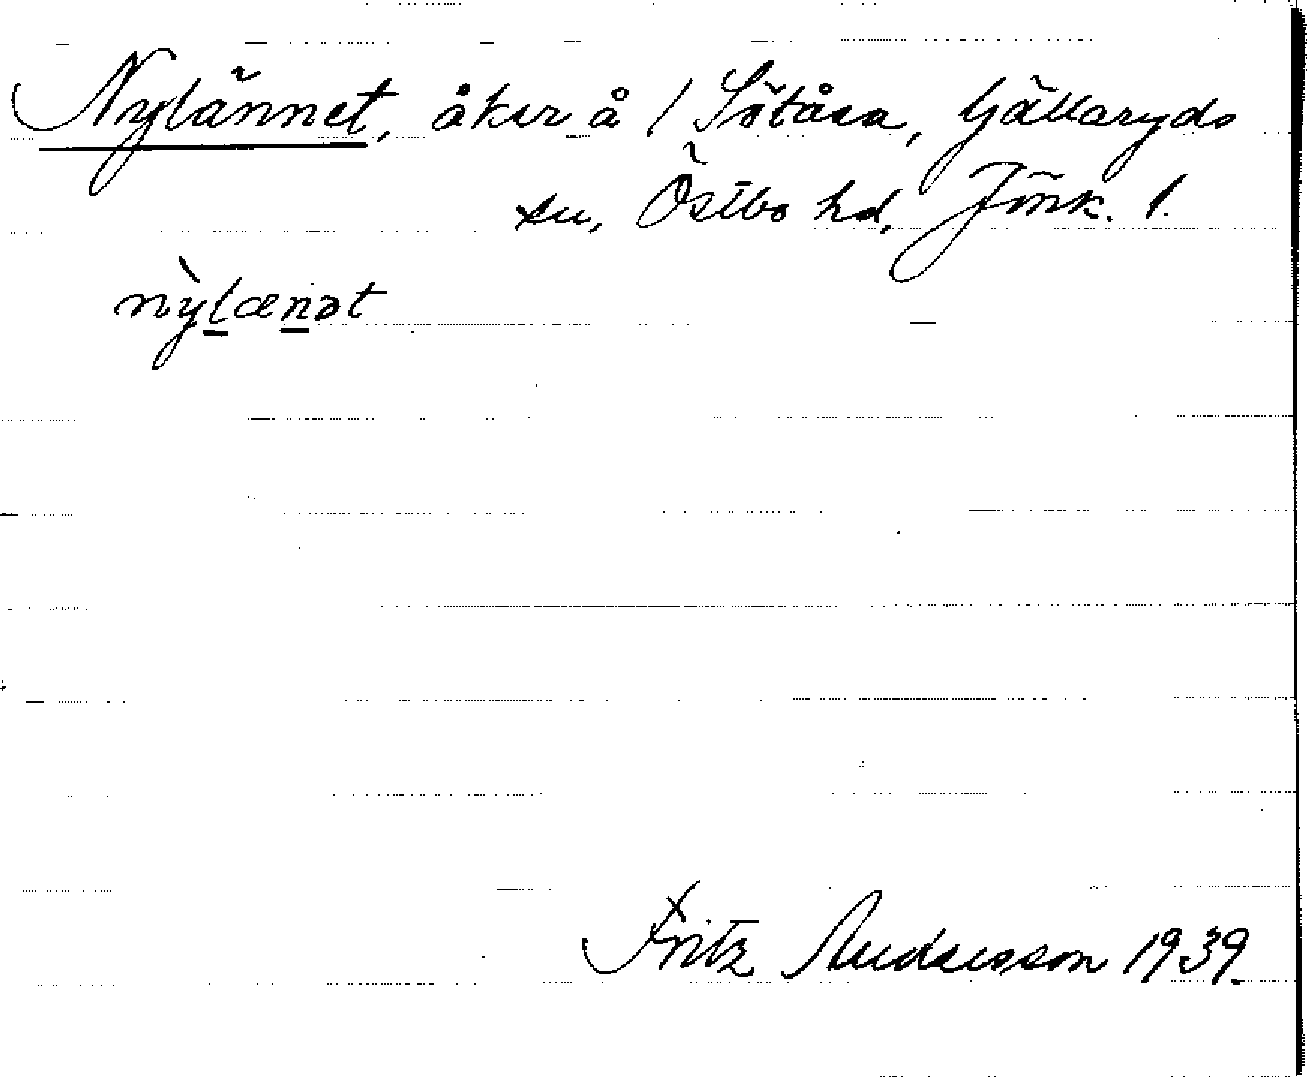 Nylännet, åker å 1 Sötåsa, Gällaryds
sn, Östbo hd, Jönk. l.
nỳlænət
Fritz Andersson 1939.